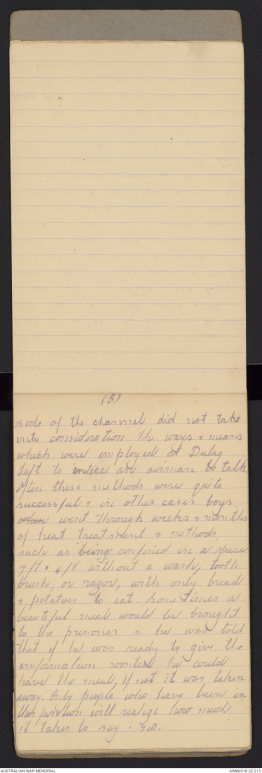 (5)
side of the channel did not take
into consideration the ways & means
which were employed at Dulag
Luft to entice our airman to talk
Often these methods were quite
successful & in other cases boys
went through weeks & months
of heat treatment & methods,
such as being confined in a space
7ft x 4ft without a wash, tooth
brush, or razor, with only bread
& potatoes to eat. Sometimes a
beautiful meal would be brought
to the prisoner & he was told
that if he was ready to give the
information wanted he could
have the meal, if not it was taken
away. Only people who have been in
this position will realize how much
it takes to say - no.
AUSTRALIAN WAR MEMORIAL
AWM2019.22.213